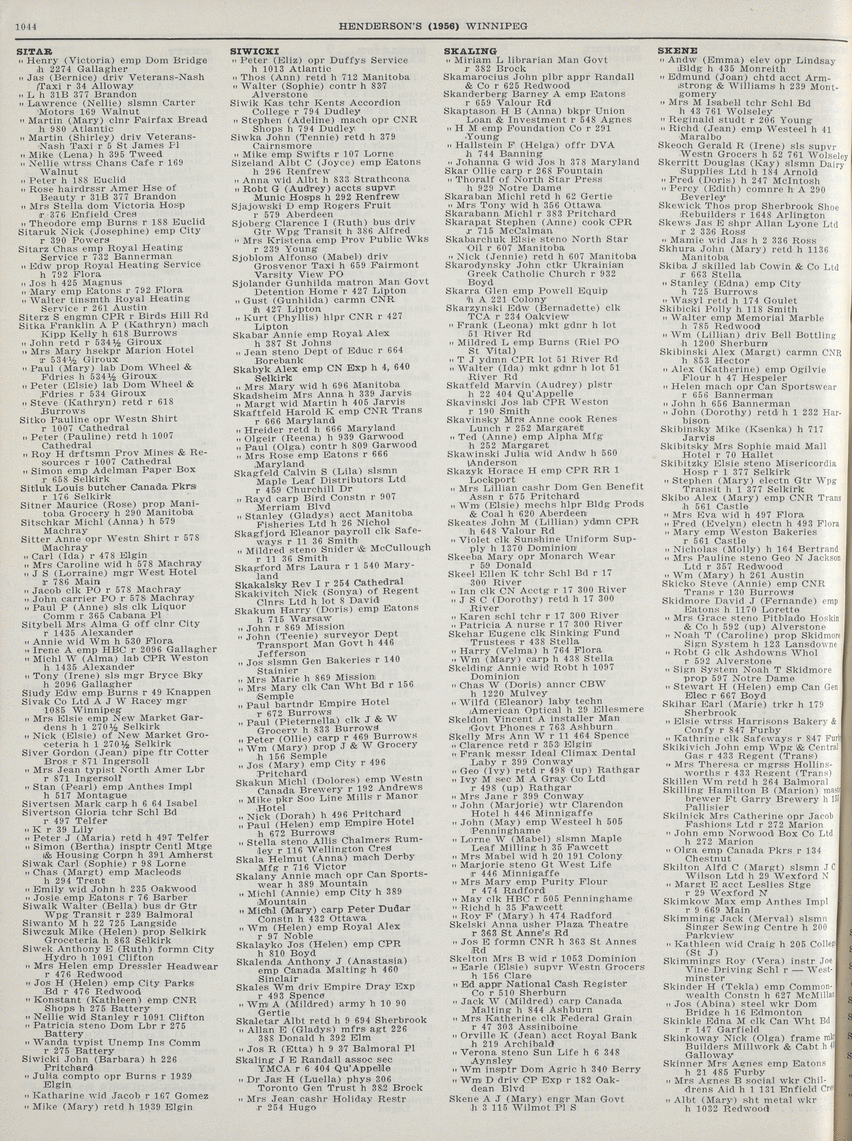 1044
HENDERSON'S (1956) WINNIPEG
SITAR
" Henry (Victoria) emp Dom Bridge
h 2274 Gallagher
" Jas (Bernice) driv Veterans-Nash
Taxi r 34 Alloway
" L h 31B 377 Brandon
" Lawrence (Nellie) slsmn Carter
Motors 169 Walnut
" Martin (Mary) clnr Fairfax Bread
h 980 Atlantic
" Martin (Shirley) driv Veterans-
Nash Taxi r 5 St James Pl
" Mike (Lena) h 395 Tweed
" Nellie wtrss Chans Cafe r 169
Walnut
" Peter h 188 Euclid
" Rose hairdrssr Amer Hse of
Beauty r 31B 377 Brandon
" Mrs Stella dom Victoria Hosp
r 376 Enfield Cres
" Theodore emp Burns r 188 Euclid
Sitaruk Nick (Josephine) emp City
r 390 Powers
Sitarz Chas emp Royal Heating
Service r 732 Bannerman
" Edw prop Royal Heating Service
h 792 Flora
" Jos h 425 Magnus
" Mary emp Eatons r 792 Flora
" Walter tinsmth Royal Heating
Service r 261 Austin
Siterz S engmn CPR r Birds Hill Rd
Sitka Franklin A P (Kathryn) mach
Kipp Kelly h 618 Burrows
" John retd r 534½ Giroux
" Mrs Mary hsekpr Marion Hotel
r 534½ Giroux
" Paul (Mary) lab Dom Wheel &
Fdries h 534½ Giroux
" Peter (Elsie) lab Dom Wheel &
Fdries r 534 Giroux
" Steve (Kathryn) retd r 618
Burrows
Sitko Pauline opr Westn Shirt
r 1007 Cathedral
" Peter (Pauline) retd h 1007
Cathedral
" Roy H drftsmn Prov Mines & Re-
sources r 1007 Cathedral
" Simon emp Adelman Paper Box
r 658 Selkirk
Sitluk Louis butcher Canada Pkrs
r 176 Selkirk
Sitner Maurice (Rose) prop Mani-
toba Grocery h 290 Manitoba
Sitschkar Michl (Anna) h 579
Machray
Sitter Anne opr Westn Shirt r 578
Machray
" Carl (Ida) r 478 Elgin
" Mrs Caroline wid h 578 Machray
" J S (Lorraine) mgr West Hotel
r 786 Main
" Jacob clk PO r 578 Machray
" John carrier PO r 578 Machray
" Paul P (Anne) sls clk Liquor
Comm r 365 Cabana Pl
Sitybell Mrs Alma G off clnr City
r 1435 Alexander
" Annie wid Wm h 530 Flora
" Irene A emp HBC r 2096 Gallagher
" Michl W (Alma) lab CPR Weston
h 1435 Alexander
" Tony (Irene) sls mgr Bryce Bky
h 2096 Gallagher
Siudy Edw emp Burns r 49 Knappen
Sivak Co Ltd A J W Racey mgr
1085 Winnipeg
" Mrs Elsie emp New Market Gar-
dens h 1 270½ Selkirk
" Nick (Elsie) of New Market Gro-
ceteria h 1 270½ Selkirk
Siver Gordon (Jean) pipe ftr Cotter
Bros r 871 Ingersoll
" Mrs Jean typist North Amer Lbr
r 871 Ingersoll
" Stan (Pearl) emp Anthes Impl
h 517 Montague
Sivertsen Mark carp h 6 64 Isabel
Sivertson Gloria tchr Schl Bd
r 497 Telfer
" K r 39 Lily
" Peter J (Maria) retd h 497 Telfer
" Simon (Bertha) insptr Centl Mtge
& Housing Corpn h 391 Amherst
Siwak Carl (Sophie) r 98 Lorne
" Chas (Margt) emp Macleods
h 294 Trent
" Emily wid John h 235 Oakwood
" Josie emp Eatons r 76 Barber
Siwalk Walter (Bella) bus dr Gtr
Wpg Transit r 239 Balmoral
Siwanto M h 22 725 Langside
Siwczuk Mike (Helen) prop Selkirk
Groceteria h 863 Selkirk
Siwek Anthony E (Ruth) formn City
Hydro h 1091 Clifton
" Mrs Helen emp Dressler Headwear
r 476 Redwood
" Jos H (Helen) emp City Parks
Bd r 476 Redwood
" Konstant (Kathleen) emp CNR
Shops h 275 Battery
" Nellie wid Stanley r 1091 Clifton
" Patricia steno Dom Lbr r 275
Battery
" Wanda typist Unemp Ins Comm
r 275 Battery
Siwicki John (Barbara) h 226
Pritchard
" Julia compto opr Burns r 1939
Elgin
" Katharine wid Jacob r 167 Gomez
" Mike (Mary) retd h 1939 Elgin
SIWICKI
" Peter (Eliz) opr Duffys Service
h 1013 Atlantic
" Thos (Ann) retd h 712 Manitoba
" Walter (Sophie) contr h 837
Alverstone
Siwik Kas tchr Kents Accordion
College r 794 Dudley
" Stephen (Adeline) mach opr CNR
Shops h 794 Dudley
Siwka John (Tennie) retd h 379
Cairnsmore
" Mike emp Swifts r 107 Lorne
Sizeland Albt C (Joyce) emp Eatons
h 296 Renfrew
" Anna wid Albt h 833 Strathcona
" Robt G (Audrey) accts supvr
Munic Hosps h 292 Renfrew
Sjajowski D emp Rogers Fruit
r 579 Aberdeen
Sjoberg Clarence I (Ruth) bus driv
Gtr Wpg Transit h 386 Alfred
" Mrs Kristena emp Prov Public Wks
r 239 Young
Sjoblom Alfonso (Mabel) driv
Grosvenor Taxi h 659 Fairmont
Varsity View PO
Sjolander Gunhilda matron Man Govt
Detention Home r 427 Lipton
" Gust (Gunhilda) carmn CNR
h 427 Lipton
" Kurt (Phyllis) hlpr CNR r 427
Lipton
Skabar Annie emp Royal Alex
h 387 St Johns
" Jean steno Dept of Educ r 664
Borebank
Skabyk Alex emp CN Exp h 4, 640
Selkirk
" Mrs Mary wid h 696 Manitoba
Skadsheim Mrs Anna h 339 Jarvis
" Margt wid Martin h 405 Jarvis
Skaftfeld Harold K emp CNR Trans
r 666 Maryland
" Hreider retd h 666 Maryland
" Olgeir (Reena) h 939 Garwood
" Paul (Olga) contr h 809 Garwood
" Mrs Rose emp Eatons r 666
Maryland
Skagfeld Calvin S (Lila) slsmn
Maple Leaf Distributors Ltd
r 459 Churchill Dr
" Rayd carp Bird Constn r 907
Merriam Blvd
" Stanley (Gladys) acct Manitoba
Fisheries Ltd h 26 Nichol
Skagfjord Eleanor payroll clk Safe-
ways r 11 36 Smith
" Mildred steno Snider & McCullough
r 11 36 Smith
Skagford Mrs Laura r 1 540 Mary-
land
Skakalsky Rev I r 254 Cathedral
Skakivitch Nick (Sonya) of Regent
Clnrs Ltd h lot 8 David
Skakum Harry (Doris) emp Eatons
h 715 Warsaw
" John r 869 Mission
" John (Teenie) surveyor Dept
Transport Man Govt h 446
Jefferson
" Jos slsmn Gen Bakeries r 140
Stainier
" Mrs Marie h 869 Mission
" Mrs Mary clk Can Wht Bd r 156
Semple
" Paul bartndr Empire Hotel
r 672 Burrows
" Paul (Pieternella) clk J & W
Grocery h 833 Burrows
" Peter (Ollie) carp r 469 Burrows
" Wm (Mary) prop J & W Grocery
h 156 Semple
" Jos (Mary) emp City r 496
Pritchard
Skakun Michl (Dolores) emp Westn
Canada Brewery r 192 Andrews
" Mike pkr Soo Line Mills r Manor
Hotel
" Nick (Dorah) h 496 Pritchard
" Paul (Helen) emp Empire Hotel
h 672 Burrows
" Stella steno Allis Chalmers Rum-
ley r 116 Wellington Cres
Skala Helmut (Anna) mach Derby
Mfg r 716 Victor
Skalany Annie mach opr Can Sports-
wear h 389 Mountain
" Michl (Annie) emp City h 389
Mountain
" Michl (Mary) carp Peter Dudar
Constn h 432 Ottawa
" Wm (Helen) emp Royal Alex
r 97 Noble
Skalayko Jos (Helen) emp CPR
h 810 Boyd
Skalenda Anthony J (Anastasia)
emp Canada Malting h 460
Sinclair
Skales Wm driv Empire Dray Exp
r 493 Spence
" Wm A (Mildred) army h 10 90
Gertie
Skaletar Albt retd h 9 694 Sherbrook
" Allan E (Gladys) mfrs agt 226
388 Donald h 392 Elm
" Jos R (Etta) h 9 37 Balmoral Pl
Skaling J E Randall assoc sec
YMCA r 6 404 Qu'Appelle
" Dr Jas H (Luella) phys 306
Toronto Gen Trust h 382 Brock
" Mrs Jean cashr Holiday Restr
r 254 Hugo
SKALING
" Miriam L librarian Man Govt
r 382 Brock
Skamarocius John plbr appr Randall
& Co r 625 Redwood
Skanderberg Barney A emp Eatons
r 659 Valour Rd
Skaptason H B (Anna) bkpr Union
Loan & Investment r 548 Agnes
" H M emp Foundation Co r 291
Young
" Hallstein F (Helga) offr DVA
h 744 Banning
" Johanna G wid Jos h 378 Maryland
Skar Ollie carp r 268 Fountain
" Thoralf of North Star Press
h 929 Notre Dame
Skaraban Michl retd h 62 Gertie
" Mrs Tony wid h 356 Ottawa
Skarabann Michl r 383 Pritchard
Skarapat Stephen (Anne) cook CPR
r 715 McCalman
Skabarchuk Elsie steno North Star
Oil r 607 Manitoba
" Nick (Jennie) retd h 607 Manitoba
Skarodynsky John ctkr Ukrainian
Greek Catholic Church r 932
Boyd
Skarra Glen emp Powell Equip
h A 221 Colony
Skarzynski Edw (Bernadette) clk
TCA r 234 Oakview
" Frank (Leona) mkt gdnr h lot
51 River Rd
" Mildred L emp Burns (Riel PO
St Vital)
" T J ydmn CPR lot 51 River Rd
" Walter (Ida) mkt gdnr h lot 51
River Rd
Skatfeld Marvin (Audrey) plstr
h 22 404 Qu'Appelle
Skavinski Jos lab CPR Weston
r 190 Smith
Skavinsky Mrs Anne cook Renes
Lunch r 252 Margaret
" Ted (Anne) emp Alpha Mfg
h 252 Margaret
Skawinski Julia wid Andw h 560
Anderson
Skazyk Horace H emp CPR RR 1
Lockport
" Mrs Lillian cashr Dom Gen Benefit
Assn r 575 Pritchard
" Wm (Elsie) mechs hlpr Bldg Prods
& Coal h 620 Aberdeen
Skeates John M (Lillian) ydmn CPR
h 648 Valour Rd
" Violet clk Sunshine Uniform Sup-
ply h 1370 Dominion
Skeeba Mary opr Monarch Wear
r 59 Donald
Skeel Ellen K tchr Schl Bd r 17
300 River
" Ian clk CN Acctg r 17 300 River
" J S C (Dorothy) retd h 17 300
River
" Karen schl tchr r 17 300 River
" Patricia A nurse r 17 300 River
Skehar Eugene clk Sinking Fund
Trustees r 438 Stella
" Harry (Velma) h 764 Flora
" Wm (Mary) carp h 438 Stella
Skelding Annie wid Robt h 1097
Dominion
" Chas W (Doris) anncr CBW
h 1220 Mulvey
" Wilfd (Eleanor) laby techn
American Optical h 29 Ellesmere
Skeldon Vincent A installer Man
Govt Phones r 763 Ashburn
Skelly Mrs Ann W r 11 464 Spence
" Clarence retd r 353 Elgin
" Frank messr Ideal Climax Dental
Laby r 399 Conway
" Geo (Ivy) retd r 498 (up) Rathgar
" Ivy M sec M A Gray Co Ltd
r 498 (up) Rathgar
" Mrs Jane r 399 Conway
" John (Marjorie) wtr Clarendon
Hotel h 446 Minnigaffe
" John (May) emp Westeel h 505
Penninghame
" Lorne W (Mabel) slsmn Maple
Leaf Milling h 35 Fawcett
" Mrs Mabel wid h 20 191 Colony
" Marjorie steno Gt West Life
r 446 Minnigaffe
" Mrs Mary emp Purity Flour
r 474 Radford
" May clk HBC r 505 Penninghame
" Richd h 35 Fawcett
" Roy F (Mary) h 474 Radford
Skelski Anna usher Plaza Theatre
r 363 St Anne's Rd
" Jos E formn CNR h 363 St Annes
Rd
Skelton Mrs B wid r 1053 Dominion
" Earle (Elsie) supvr Westn Grocers
h 156 Clare
" Ed appr National Cash Register
Co r 510 Sherburn
" Jack W (Mildred) carp Canada
Malting h 844 Ashburn
" Mrs Katherine clk Federal Grain
r 47 303 Assiniboine
" Orville K (Jean) acct Royal Bank
h 219 Archibald
" Verona steno Sun Life h 6 348
Aynsley
" Wm insptr Dom Agric h 340 Berry
" Wm D driv CP Exp r 182 Oak-
dean Blvd
Skene A J (Mary) engr Man Govt
h 3 115 Wilmot Pl S
SKENE
" Andw (Emma) elev opr Lindsay
Bldg h 435 Monreith
" Edmund (Joan) chtd acct Arm-
strong & Williams h 239 Mont-
gomery
" Mrs M Isabell tchr Schl Bd
h 43 761 Wolseley
" Reginald studt r 206 Young
" Richd (Jean) emp Westeel h 41
Maralbo
Skeoch Gerald R (Irene) sls supvr
Westn Grocers h 52 761 Wolseley
Skerritt Douglas (Kay) slsmn Dairy
Supplies Ltd h 184 Arnold
" Fred (Doris) h 247 McIntosh
" Percy (Edith) comnre h A 290
Beverley
Skewick Thos prop Sherbrook Shoe
Rebuilders r 1648 Arlington
Skews Jas E shpr Allan Lyone Ltd
r 2 336 Ross
" Mamie wid Jas h 2 336 Ross
Skhura John (Mary) retd h 1136
Manitoba
Skiba J skilled lab Cowin & Co Ltd
r 663 Stella
" Stanley (Edna) emp City
h 725 Burrows
" Wasyl retd h 174 Goulet
Skibicki Polly h 118 Smith
" Walter emp Memorial Marble
h 785 Redwood
" Wm (Lillian) driv Bell Bottling
h 1200 Sherburn
Skibinski Alex (Margt) carmn CNR
h 853 Hector
" Alex (Katherine) emp Ogilvie
Flour h 47 Hespeler
" Helen mach opr Can Sportswear
r 656 Bannerman
" John h 656 Bannerman
" John (Dorothy) retd h 1 232 Har-
bison
Skibinsky Mike (Ksenka) h 717
Jarvis
Skibitsky Mrs Sophie maid Mall
Hotel r 70 Hallet
Skibitzky Elsie steno Misericordia
Hosp r 1 377 Selkirk
" Stephen (Mary) electn Gtr Wpg
Transit h 1 377 Selkirk
Skibo Alex (Mary) emp CNR Trans
h 561 Castle
" Mrs Eva wid h 497 Flora
" Fred (Evelyn) electn h 493 Flora
" Mary emp Weston Bakeries
r 561 Castle
" Nicholas (Molly) h 164 Bertrand
" Mrs Pauline steno Geo N Jackson
Ltd r 357 Redwood
" Wm (Mary) h 261 Austin
Skicko Steve (Annie) emp CNR
Trans r 130 Burrows
Skidmore David J (Fernande) emp
Eatons h 1170 Lorette
" Mrs Grace steno Pitblado Hoskin
& Co h 592 (up) Alverstone
" Noah T (Caroline) prop Skidmore
Sign System h 123 Lansdowne
" Robt G clk Ashdowns Whol
r 592 Alverstone
" Sign System Noah T Skidmore
prop 597 Notre Dame
" Stewart H (Helen) emp Can Gen
Elec r 667 Boyd
Skihar Earl (Marie) trkr h 179
Sherbrook
" Elsie wtrss Harrisons Bakery &
Confy r 847 Furby
" Kathrine clk Safeways r 847 Furby
Skikivich John emp Wpg & Central
Gas r 433 Regent (Trans)
" Mrs Theresa cr mgrss Hollins-
worths r 433 Regent (Trans)
Skillen Wm retd h 264 Balmoral
Skilling Hamilton B (Marion)
brewer Ft Garry Brewery h
Pallisier
Skilnick Mrs Catherine opr Jacob
Fashions Ltd r 272 Marion
" John emp Norwood Box Co Ltd
h 272 Marion
" Olga emp Canada Pkrs r 134
Chestnut
Skilton Alfd C (Margt) slsmn J C
Wilson Ltd h 29 Wexford N
" Margt E acct Leslies Stge
r 29 Wexford N
Skimkow Max emp Anthes Impl
r 9 669 Main
Skimming Jack (Merval) slsmn
Singer Sewing Centre h 200
Parkview
" Kathleen wid Craig h 205
(St J)
Skimmings Roy (Vera) instr Joe
Vine Driving Schl r — West-
minster
Skinder H (Tekla) emp Common-
wealth Constn h 627 McMillan
" Jos (Abina) steel wkr Dom
Bridge h 16 Edmonton
Skinkle Edna M clk Can Wht Bd
r 147 Garfield
Skinkoway Nick (Olga) frame
Builders Millwork & Cabt h
Galloway
Skinner Mrs Agnes emp Eatons
h 21 485 Furby
" Mrs Agnes B social wkr Chil-
drens Aid h 1 131 Enfield Cres
" Albt (Mary) sht metal wkr
h 1032 Redwood